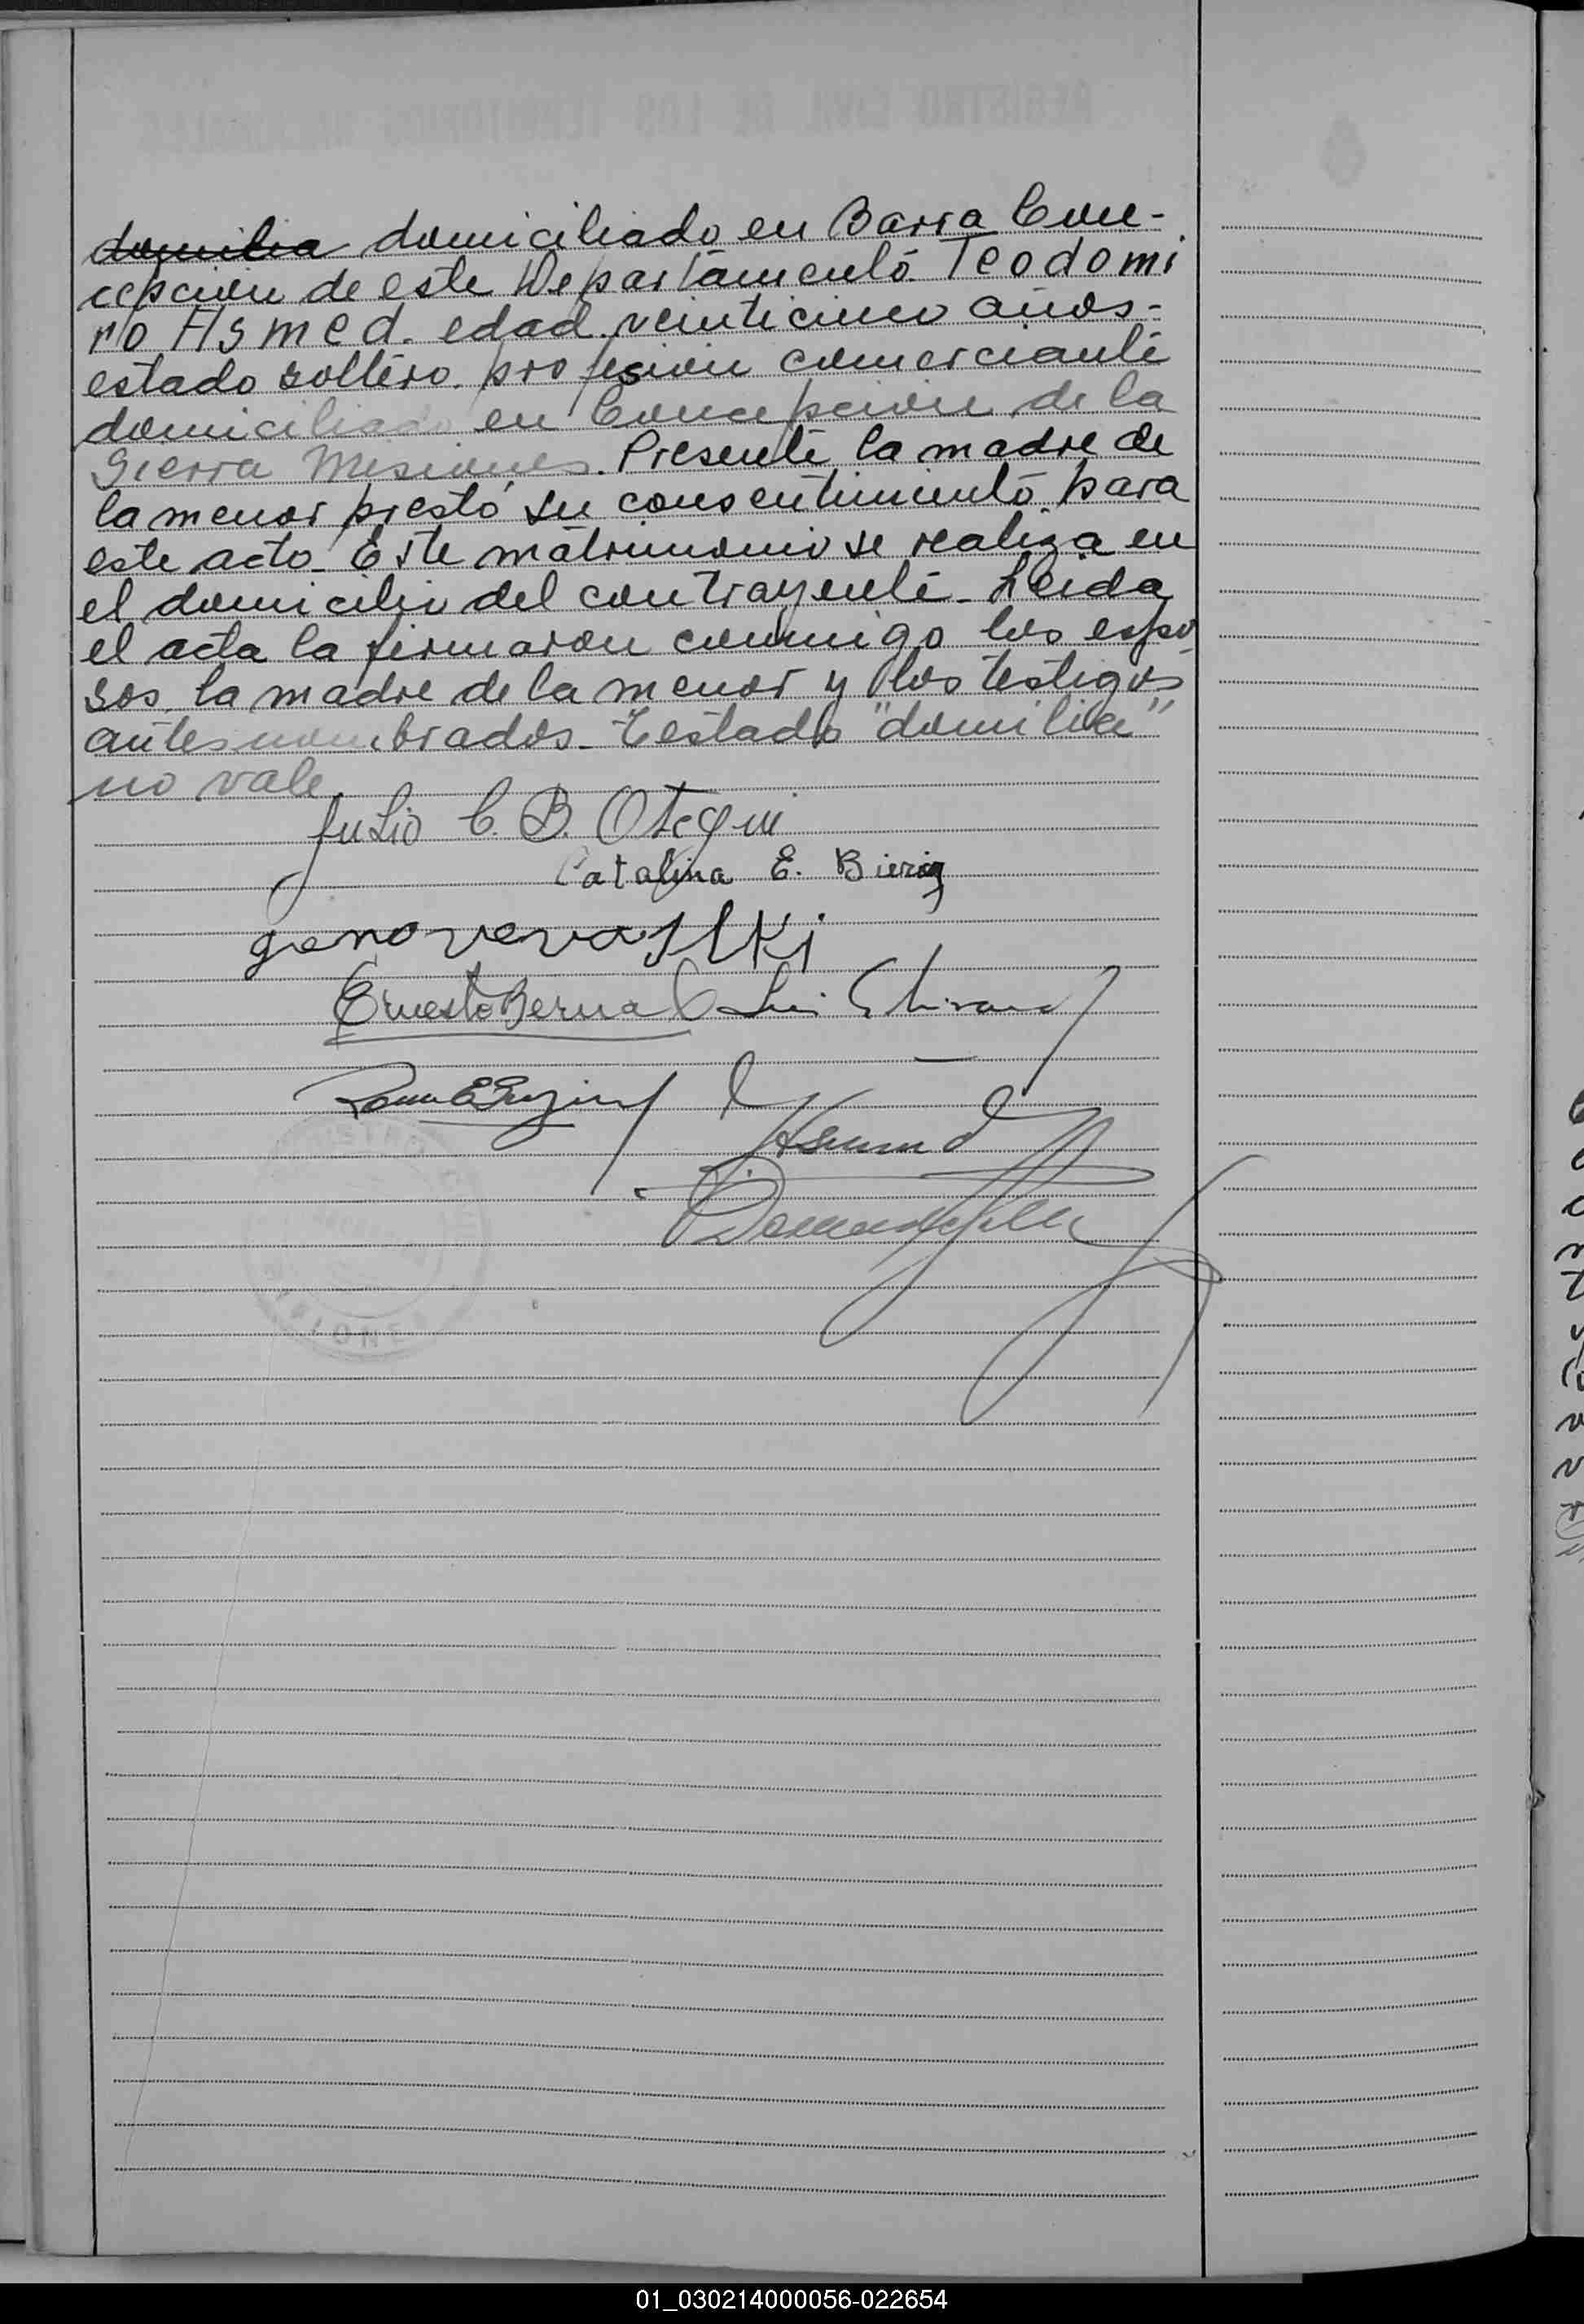 domilia domiciliado en Barra Con-
cepcion de este Departamento. Teodomi
ro Asmed. edad veinticinco años-
estado soltero. profesion comerciante
domiciliado en Concepcion de la
Sierra Misiones. Presente la madre de
la menor prestó su consentimiento para
este acto. Este matrimonio se realiza en
el domicilio del contrayente. Leida
el acta la firmaron conmigo los espo
sos, la madre de la menor y los testigos
antes nombrados. Testado "domilia"
no vale
Julio C. B. Otegui
Catalina E.
genoveva
Ernesto Bernal Luis
Asmed
01_030214000056-022654